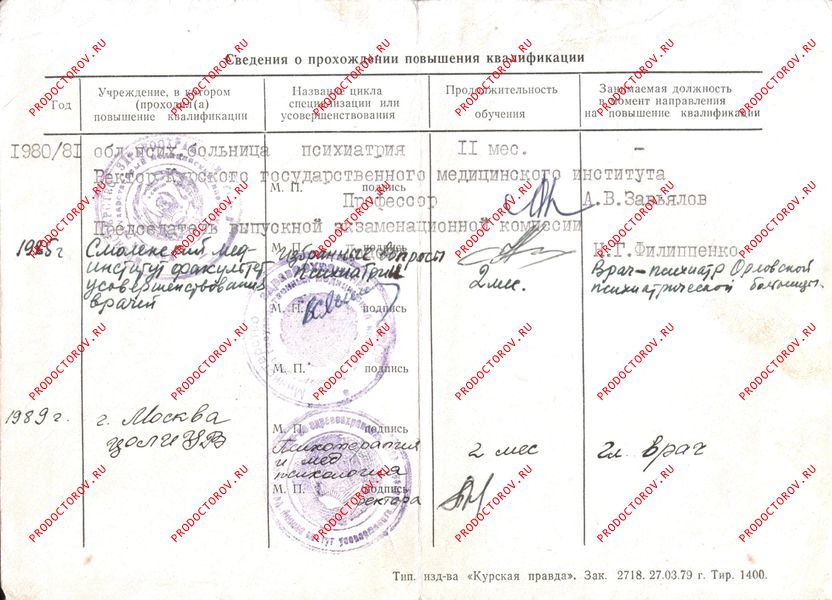 Сведения о прохождении повышения квалификации
Год
Учреждение, в котором
(проходил(а)
повышение квалификации
Название цикла
специализации или
усовершенствования
Продолжительность
обучения
Занимаемая должность
в момент направления
на повышение квалификации
1980/81 обл.псих.больница психиатрия II мес. -
Ректор Курского государственного медицинского института
М. П. подпись
Профессор А.В.Завьялов
Председатель выпускной экзаменационной комиссии
М. П. подпись
Н.Г.Филиппенко
1985г Смоленский мед-
институт факультет
усовершенствования
врачей
Избранные вопросы
психиатрии
2 мес.
Врач-психиатр Орловской
психиатрической больницы.
М. П. подпись
М. П. подпись
1989 г. г. Москва
ЦОЛИУВ
М. П. подпись
Психотерапия
и мед
психология
2 мес
Гл. врач
М. П. подпись
ректора
Тип. изд-ва «Курская правда». Зак. 2718. 27.03.79 г. Тир. 1400.
PRODOCTOROV.RU